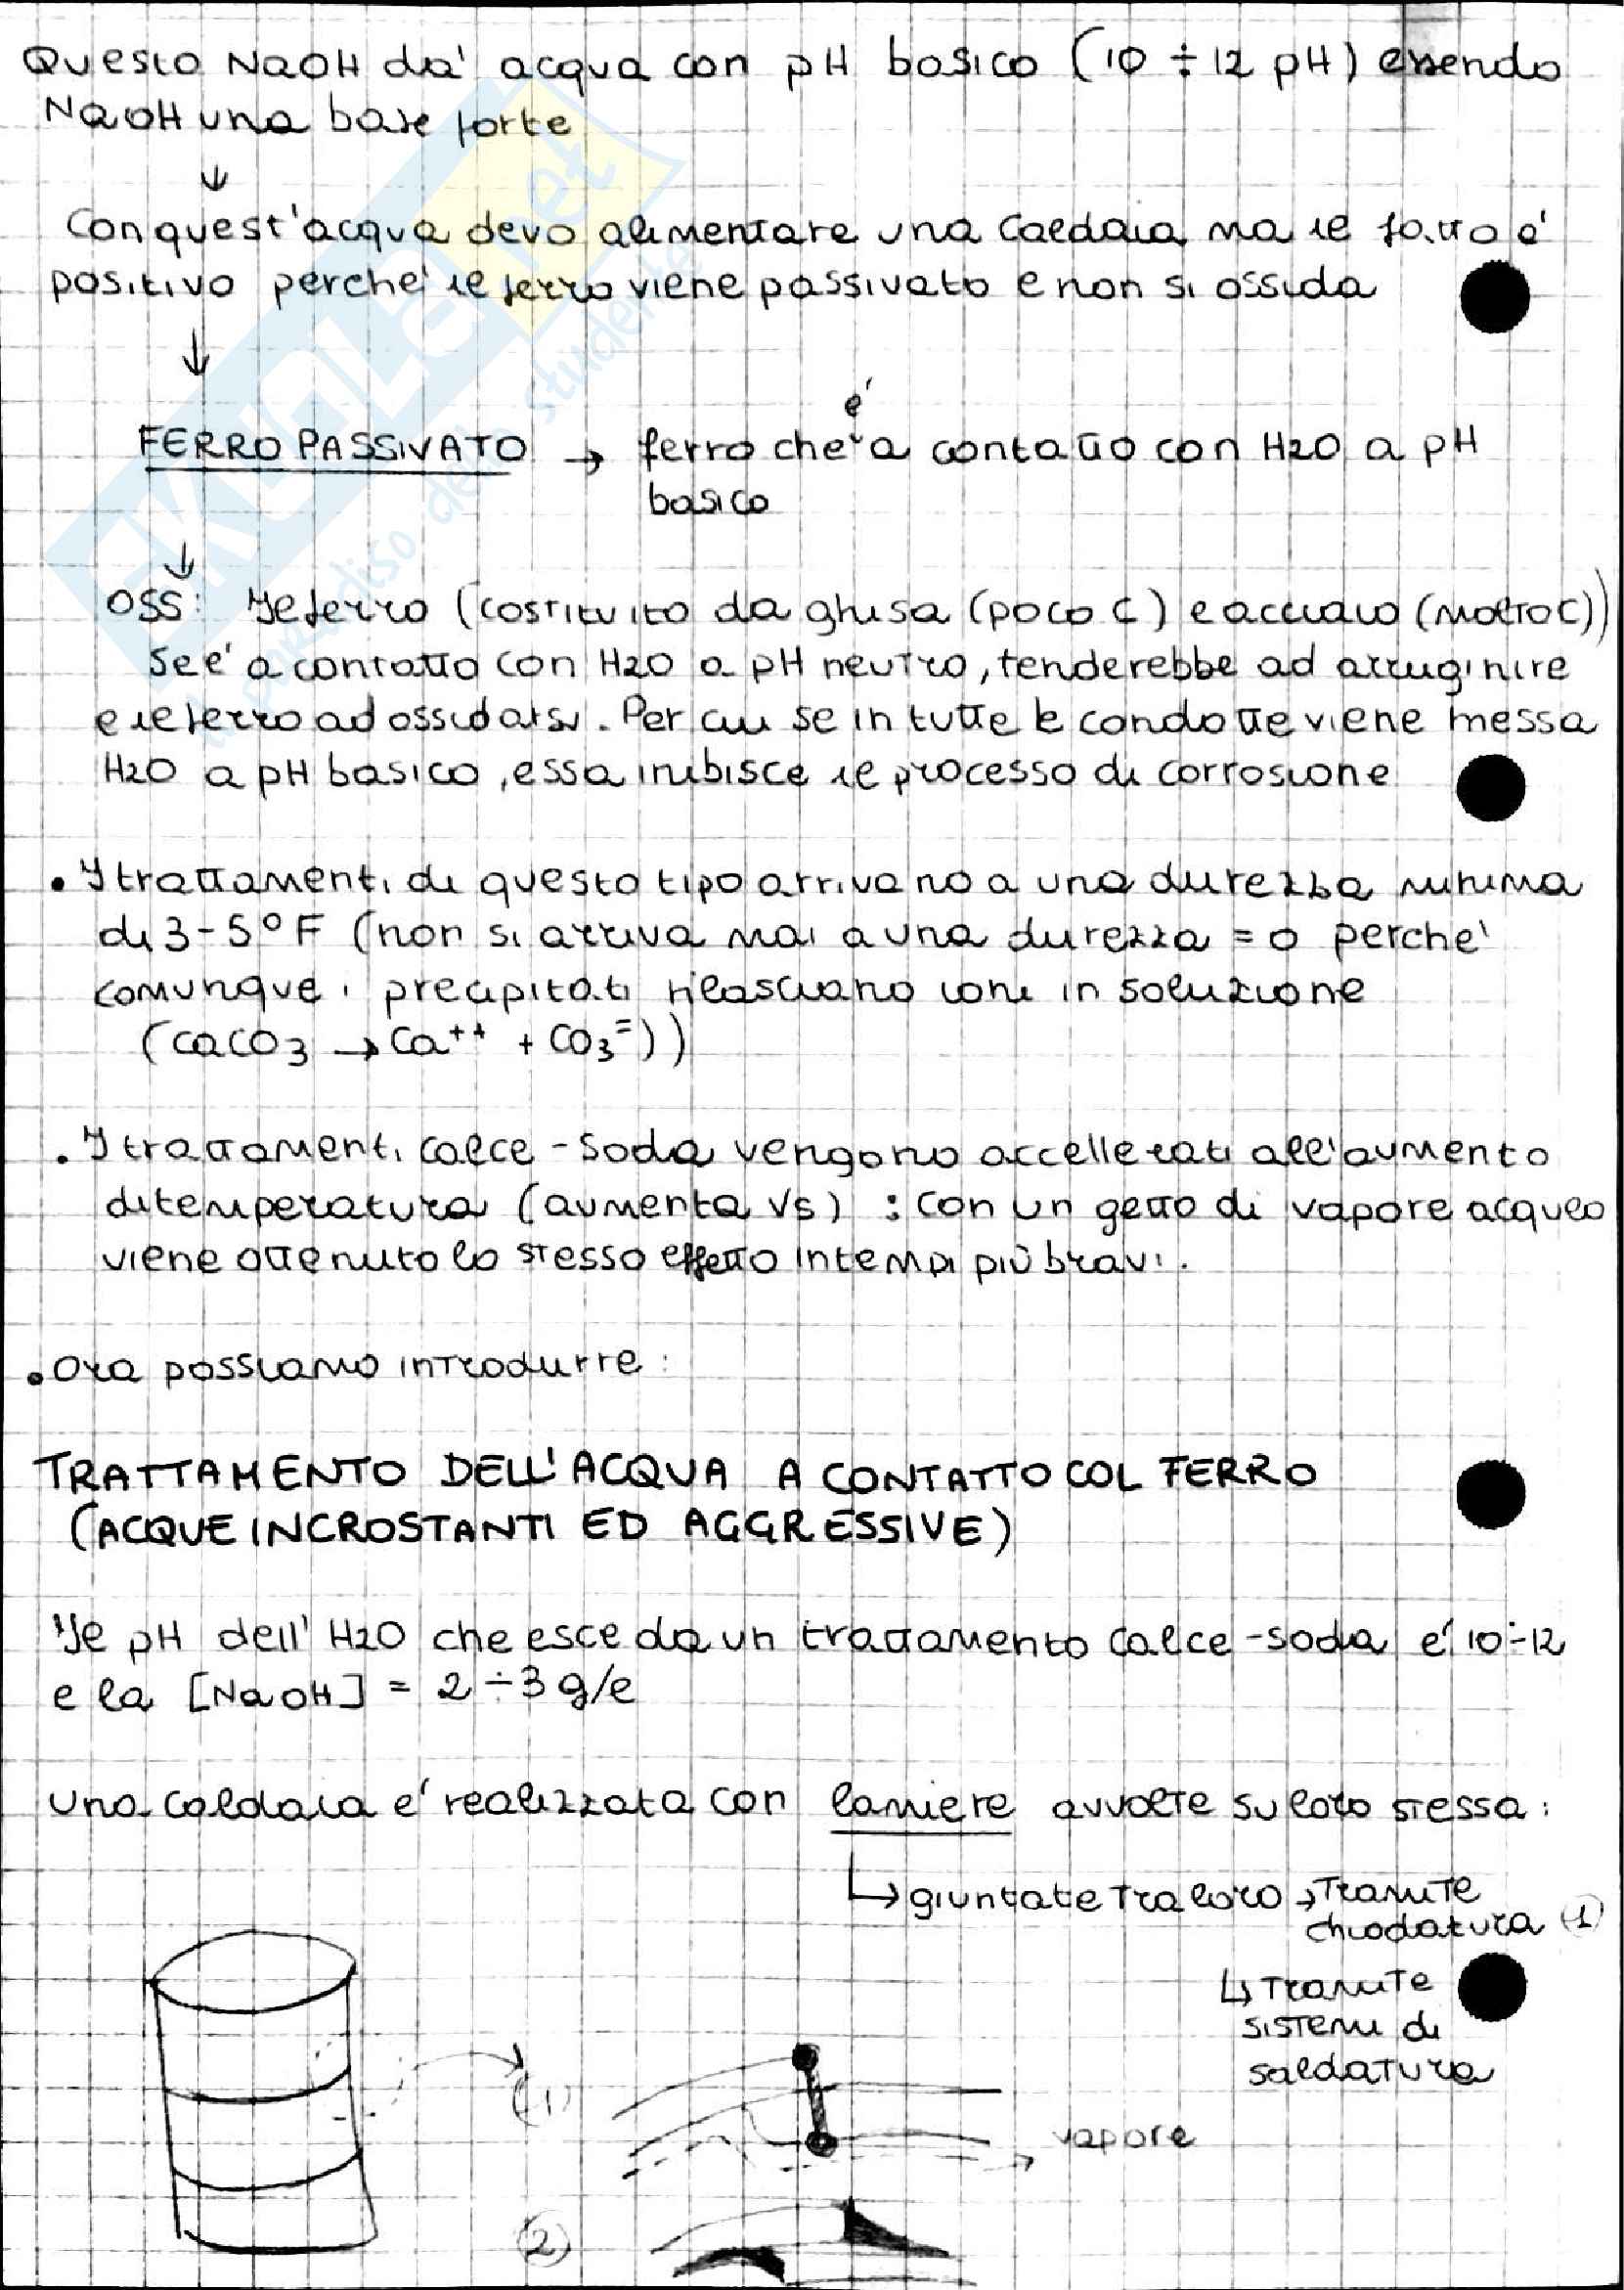 Questo NaOH da' acqua con pH basico (10 ÷ 12 pH) essendo
NaOH una base forte
↓
Con quest'acqua devo alimentare una caldaia ma il fatto e'
positivo perche' il ferro viene passivato e non si ossida
↓
FERRO PASSIVATO → ferro che e' a contatto con H2O a pH
basico
↓
OSS: Il ferro (costituito da ghisa (poco C) e acciaio (molto C))
se e' a contatto con H2O a pH neutro, tenderebbe ad arruginire
e il ferro ad ossidarsi. Per cui se in tutte le condotte viene messa
H2O a pH basico, essa inibisce il processo di corrosione
• I trattamenti di questo tipo arrivano a una durezza minima
di 3-5°F (non si arriva mai a una durezza = 0 perche'
comunque i precipitati rilasciano ioni in soluzione
(CaCO3 → Ca++ + CO3=))
• I trattamenti calce-soda vengono accellerati all'aumento
di temperatura (aumenta Vs) : con un getto di vapore acqueo
viene ottenuto lo stesso effetto in tempi più bravi.
• Ora possiamo introdurre:
TRATTAMENTO DELL'ACQUA A CONTATTO COL FERRO
(ACQUE INCROSTANTI ED AGGRESSIVE)
Il pH dell'H2O che esce da un trattamento calce-soda e' 10÷12
e la [NaOH] = 2÷3 g/l
Una caldaia e' realizzata con lamiere avvolte su loro stessa:
↳ giuntate tra loro → tramite
chiodatura (1)
↳ tramite
sistemi di
saldatura
(1)
vapore
(2)
SKUOLA.net
il paradiso dello studente